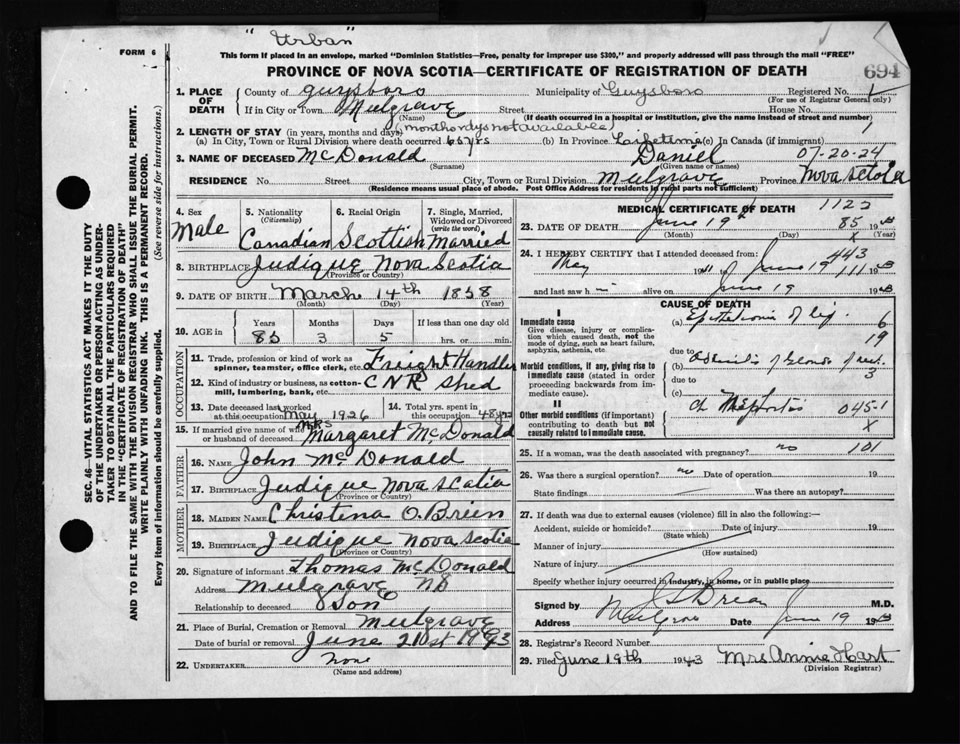 "Urban"
FORM 6
This form if placed in an envelope, marked "Dominion Statistics—Free, penalty for improper use $300," and properly addressed will pass through the mail "FREE"
PROVINCE OF NOVA SCOTIA—CERTIFICATE OF REGISTRATION OF DEATH
694
1. PLACE OF DEATH County of Guysboro Municipality of Guysboro Registered No. 1
(For use of Registrar General only)
If in City or Town Mulgrave Street House No.
(Name) (If death occurred in a hospital or institution, give the name instead of street and number)
2. LENGTH OF STAY (in years, months and days) (month or dys not available) 1
(a) In City, Town or Rural Division where death occurred 65 yrs (b) In Province Lifetime (c) In Canada (if immigrant)
3. NAME OF DECEASED McDonald Daniel 07-20-24
(Surname) (Given name or names)
RESIDENCE No. Street City, Town or Rural Division Mulgrave Province Nova Scotia
(Residence means usual place of abode. Post Office Address for residents in rural parts not sufficient)
4. Sex Male
5. Nationality (Citizenship) Canadian
6. Racial Origin Scottish
7. Single, Married, Widowed or Divorced (write the word) Married
8. BIRTHPLACE Judique Nova Scotia
(Province or Country)
9. DATE OF BIRTH March 14th 1858
(Month) (Day) (Year)
10. AGE in Years Months Days If less than one day old
85 3 5 hrs. or min.
OCCUPATION
11. Trade, profession or kind of work as spinner, teamster, office clerk, etc. Freight Handler
12. Kind of industry or business, as cotton-mill, lumbering, bank, etc. CNR Shed
13. Date deceased last worked at this occupation May 1926
14. Total yrs. spent in this occupation 48 yrs
15. If married give name of wife or husband of deceased Mrs Margaret McDonald
FATHER
16. NAME John McDonald
17. BIRTHPLACE Judique Nova Scatia
(Province or Country)
MOTHER
18. MAIDEN NAME Christena O.Brien
19. BIRTHPLACE Judique Nova Scotia
(Province or Country)
20. Signature of informant Thomas McDonald
Address Mulgrave NS
Relationship to deceased Son
21. Place of Burial, Cremation or Removal Mulgrave
Date of burial or removal June 21st 1943
22. UNDERTAKER None
(Name and address)
MEDICAL CERTIFICATE OF DEATH 1122
23. DATE OF DEATH June 19th 85 19
(Month) (Day) X (Year)
24. I HEREBY CERTIFY that I attended deceased from: 443
May 19 to June 19 111 19
and last saw h alive on June 19 19
CAUSE OF DEATH
I
Immediate cause (a) of lip. 6
Give disease, injury or complication which caused death, not the mode of dying, such as heart failure, asphyxia, asthenia, etc 19
due to
Morbid conditions, if any, giving rise to immediate cause (stated in order proceeding backwards from immediate cause). (b) of Glands of neck. 3
due to
(c)
II
Other morbid conditions (if important) contributing to death but not causally related to immediate cause. Ch Nephritis 045-1
X
25. If a woman, was the death associated with pregnancy? no 101
26. Was there a surgical operation? no Date of operation 19
State findings Was there an autopsy?
27. If death was due to external causes (violence) fill in also the following:—
Accident, suicide or homicide? Date of injury 19
(State which)
Manner of injury
(How sustained)
Nature of injury
Specify whether injury occurred in industry, in home, or in public place
Signed by M.D.
Address Mulgrave Date June 19 19
28. Registrar's Record Number
29. Filed June 19th 1943 Mrs Annie Hart
(Division Registrar)
SEC. 46—VITAL STATISTICS ACT MAKES IT THE DUTY
OF THE UNDERTAKER OR PERSON ACTING AS UNDER-
TAKER TO OBTAIN ALL THE PARTICULARS REQUIRED
IN THE "CERTIFICATE OF REGISTRATION OF DEATH"
AND TO FILE THE SAME WITH THE DIVISION REGISTRAR WHO SHALL ISSUE THE BURIAL PERMIT.
WRITE PLAINLY WITH UNFADING INK. THIS IS A PERMANENT RECORD.
Every item of information should be carefully supplied. (See reverse side for instructions.)